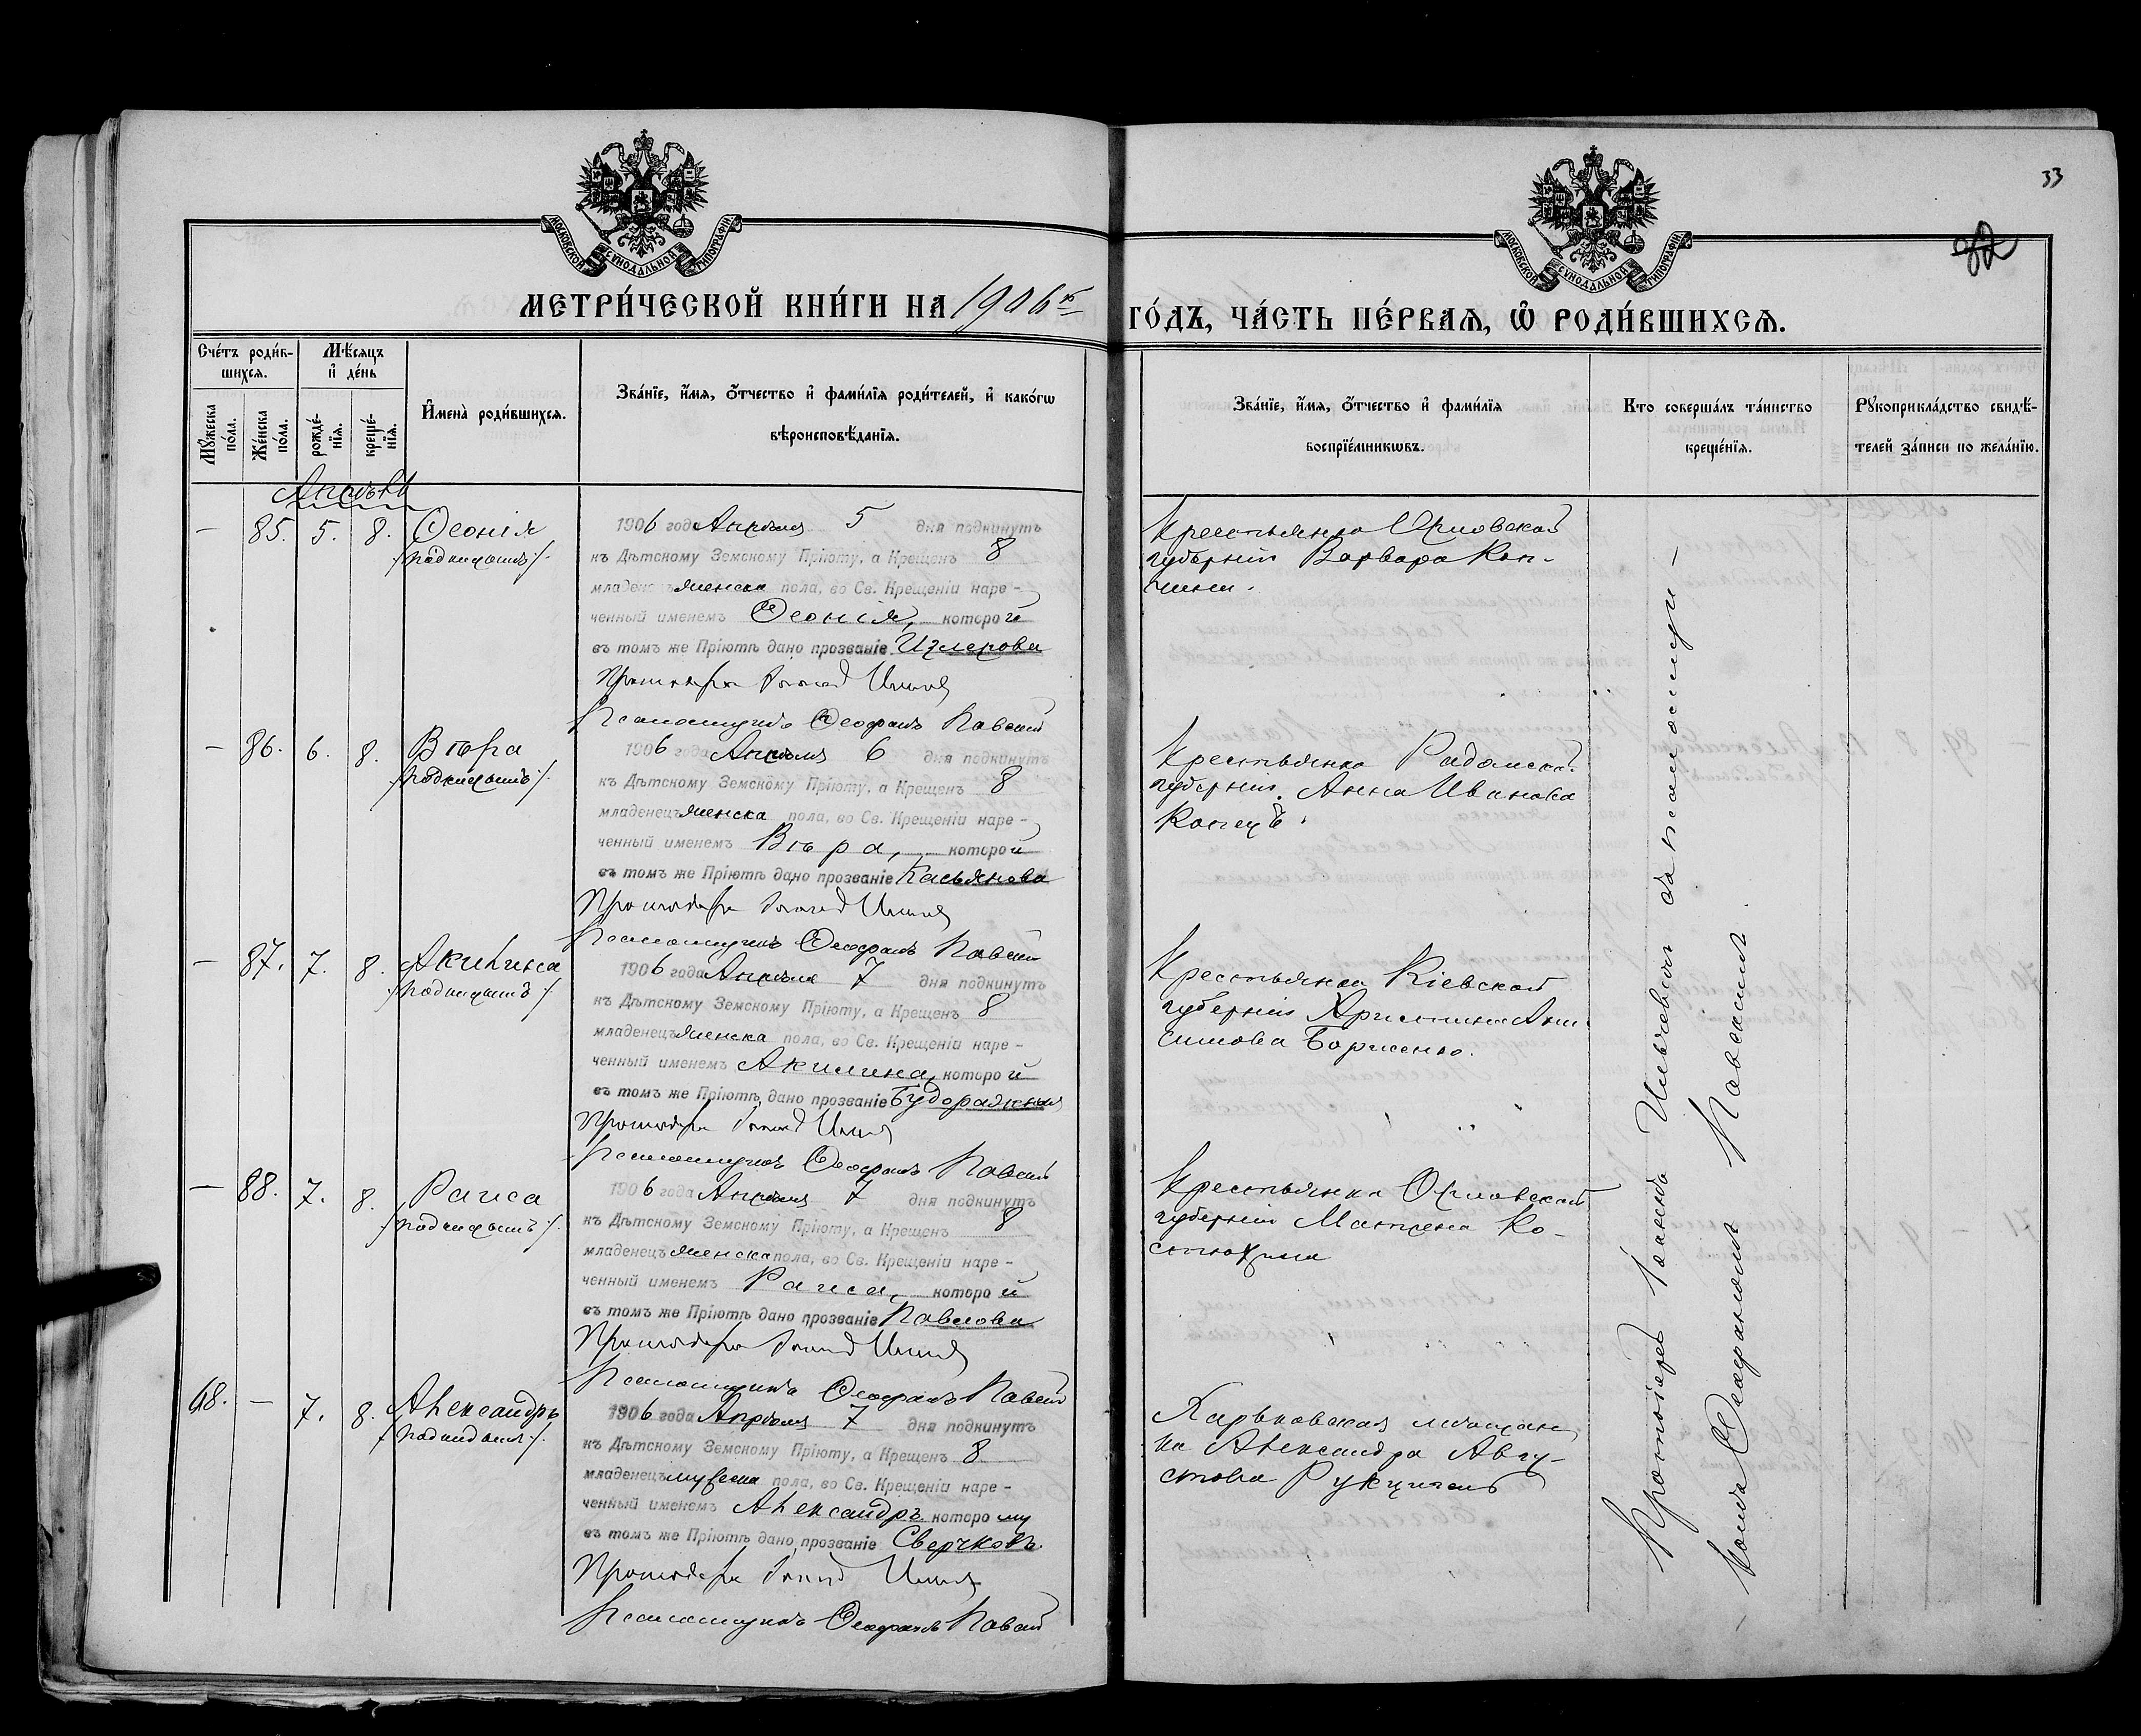 33
32
МОСКОВСКОЙ СУНОДАЛЬНОЙ ТИПОГРАФІИ
МОСКОВСКОЙ СУНОДАЛЬНОЙ ТИПОГРАФІИ
МЕТРИ́ЧЕСКОЙ КНИ́ГИ НА 1906й ГО́ДЪ, ЧА́СТЬ ПЕ́РВАѦ, Ѽ РОДИ́ВШИХСѦ.
Сче́тъ роди́в-
шихсѧ.
Мѣ́сѧцъ
и҆ де́нь
Мꙋ́жеска
по́ла.
Же́нска
по́ла.
рожде́-
нїѧ.
креще́-
нїѧ.
И҆мена̀ роди́вшихсѧ.
Зва́нїе, и҆́мѧ, ѻ҆́тчество и҆ фами́лїѧ роди́телей, и҆ како́гѡ
вѣроисповѣ́данїѧ.
Зва́нїе, и҆́мѧ, ѻ҆́тчество и҆ фами́лїѧ
воспрїе́мникѡвъ.
Кто соверша́лъ та́инство
креще́нїѧ.
Рꙋкоприкла́дство свидѣ́-
телей за́писи по жела́нїю.
Апрѣль
— 85. 5. 8. Ѳеонія
/:подкидышъ:/
1906 года Апрѣля 5 дня подкинутъ
къ Дѣтскому Земскому Пріюту, а Крещенъ 8
младенецъ женска пола, во Св. Крещеніи наре-
ченный именемъ Ѳеонія, которой
въ томъ же Пріютѣ дано прозваніе Излерова
Псаломщикъ Ѳеофанъ
Крестьянка Орловской
губерніи Варвара Коп-
— 86. 6. 8. Вѣра
/:подкидышъ:/
1906 года Апрѣля 6 дня подкинутъ
къ Дѣтскому Земскому Пріюту, а Крещенъ 8
младенецъ женска пола, во Св. Крещеніи наре-
ченный именемъ Вѣра, которой
въ томъ же Пріютѣ дано прозваніе Касьянова
Псаломщикъ Ѳеофанъ
Крестьянка Радомской
губерніи Анна Иванова
Копецъ.
— 87. 7. 8. Акилина
/:подкидышъ:/
1906 года Апрѣля 7 дня подкинутъ
къ Дѣтскому Земскому Пріюту, а Крещенъ 8
младенецъ женска пола, во Св. Крещеніи наре-
ченный именемъ Акилина, которой
въ томъ же Пріютѣ дано прозваніе
Псаломщикъ Ѳеофанъ
Крестьянка Кіевской
губерніи Христина Ани-
симова Борисенко.
— 88. 7. 8. Раиса
/:подкидышъ:/
1906 года Апрѣля 7 дня подкинутъ
къ Дѣтскому Земскому Пріюту, а Крещенъ 8
младенецъ женска пола, во Св. Крещеніи наре-
ченный именемъ Раиса, которой
въ томъ же Пріютѣ дано прозваніе Павлова
Псаломщикъ Ѳеофанъ
Крестьянка Орловской
губерніи Матрена Ко-
68. — 7. 8. Александръ
/:подкидышъ:/
1906 года Апрѣля 7 дня подкинутъ
къ Дѣтскому Земскому Пріюту, а Крещенъ 8
младенецъ мужеска пола, во Св. Крещеніи наре-
ченный именемъ Александръ, которому
въ томъ же Пріютѣ дано прозваніе Сверчковъ
Псаломщикъ Ѳеофанъ
Харьковская мѣщан-
ка Александра Авгу-
стова
Протоіерей Іоаннъ съ псаломщи-
комъ Ѳеофаномъ